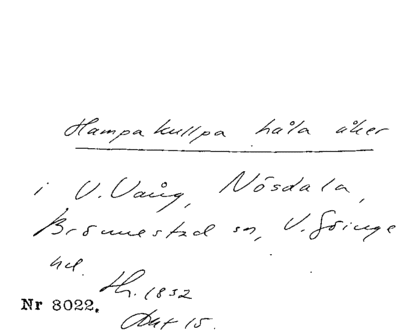 Hampakullpa håla åker
i V. Vång, Nösdala,
Brönnestad sn, V. Göinge
hd.
Th. 1832
Akt 15.
Nr 8022.